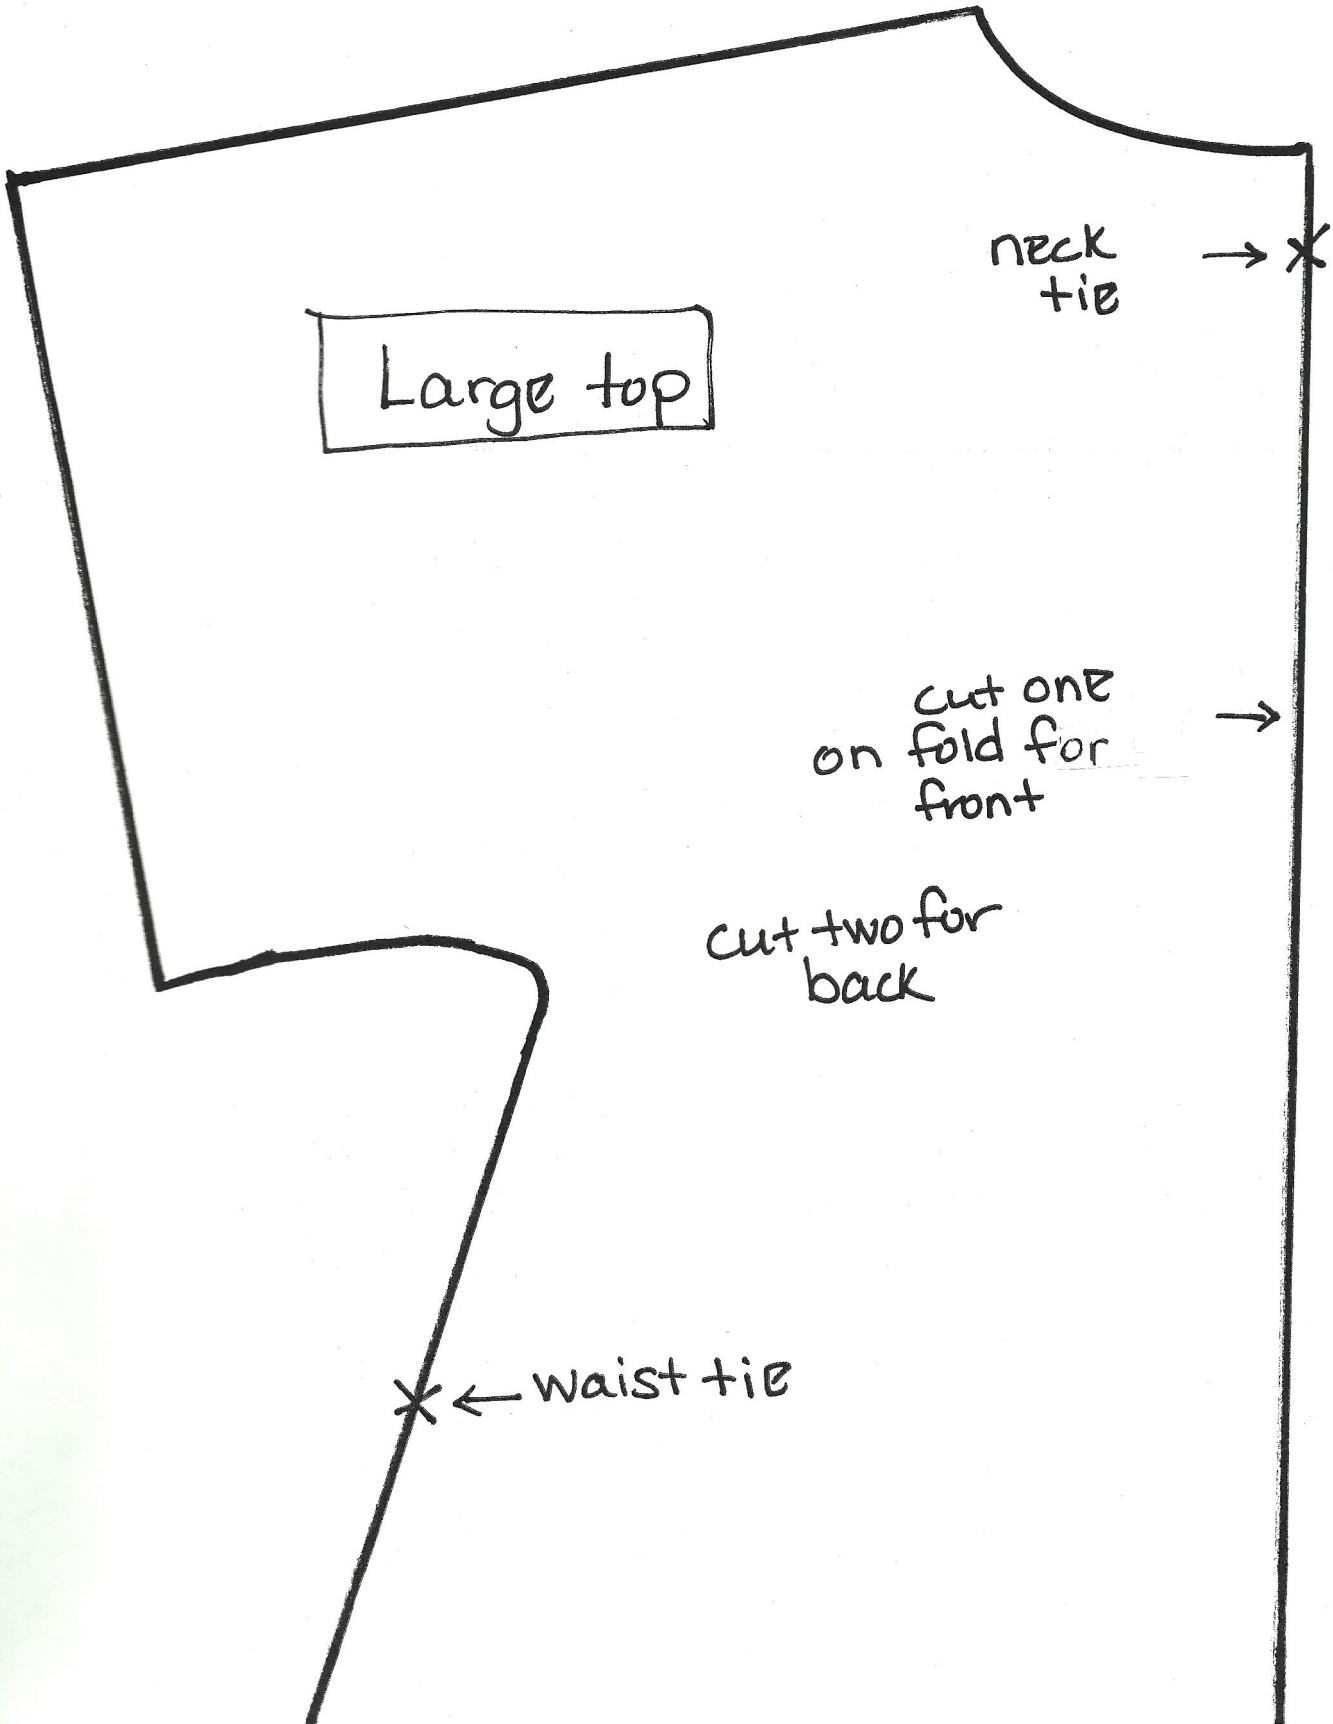 neck
tie
Large top
cut one
on fold for
front
cut two for
back
waist tie